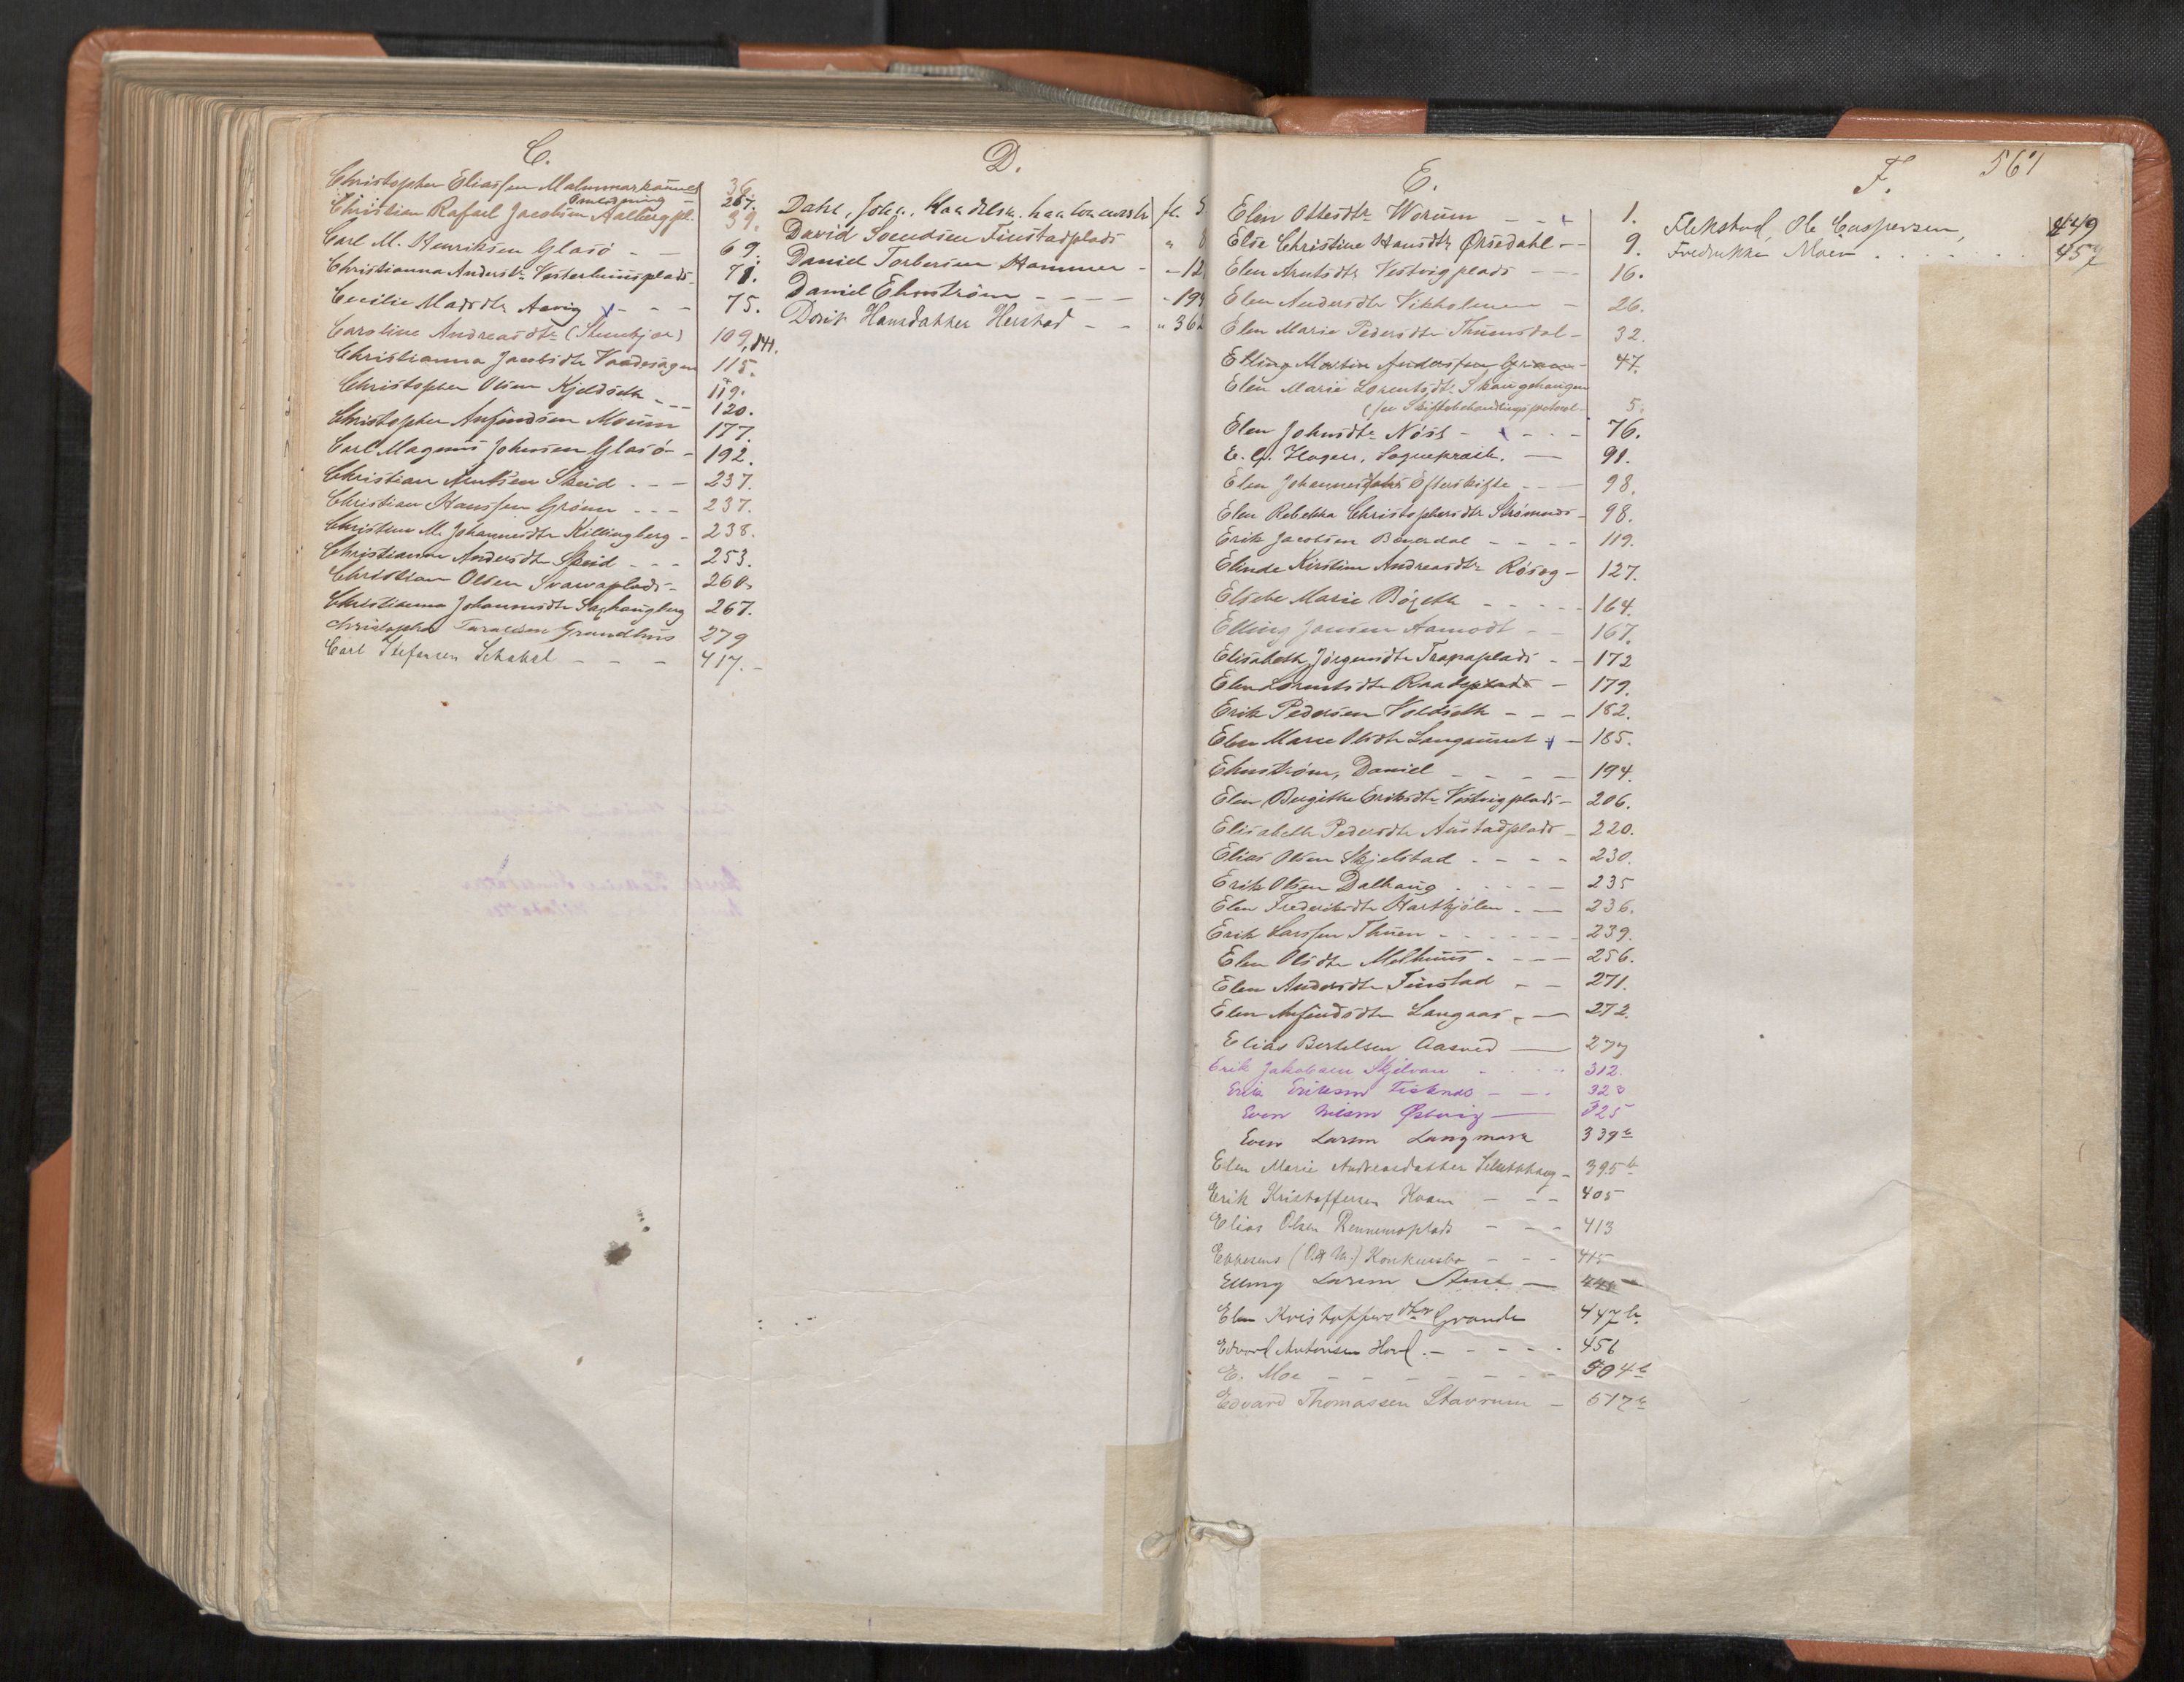 C.
Christopher Eliassen Malmmarkaunet 36.
Anledning - 267.
Christian Rafael Jacobsen Aalbergpl. 39.
Carl M. Henriksen Glasö - - 69.
Christianna Andersdtr Vesterhuusplads 71.
Cecilie Madsdtr Aavig x - - - 75.
Caroline Andreasdtr (Stenkjær) 109, 141.
Christianna Jacobsdtr 115.
Christopher Olsen Kjeldseth - - - 119.
120.
Christopher Anfindsen Moum 177.
Carl Magnus Johnsen Glasö - 192.
Christian Arntsen Skeid - - - 237.
Christian Hanssen Grönn - - - 237.
Christine M. Johannesdtr Killingberg - 238.
Christianna Andersdtr Skeid - - - 253.
Christian Olsen Svarvaplads - 260.
Christianna Johannesdtr Saxhaugberg 267.
Christopher Grundhus 279
Carl Stefansen Schakal - - - 417. -
D.
Dahl, Joh.
David Svendsen Finstadplads "
Daniel Torbersen Hammer - - 12
Daniel Ehnström - - - - - 194
Dorit Hansdatter Herstad - - " 362
E.
Elen Ottesdtr Worum - - x 1.
Else Christine Hansdtr Örsedahl - - 9.
Elen Arntsdtr Vestvigplads - - - 16.
Elen Andersdtr Vikholmen - 26.
Elen Marie Pedersdtr Thuunsdal - 32.
Elling Martin Anderssen Grönn - 47.
Elen Marie Lorentsdtr Skaugehaugen
(se Skiftebehandlingsprotocol - 5.
Elen Johnsdtr Nöst - x - - - 76.
E. G. Hagen, Sognepræst. - 91.
Elen Johannesdatr Efterskifte - - - 98.
Elen Rebekka Christophersdtr Strömnes - 98.
Erik Jacobsen - - - - 119.
Elinde Kirstine Andreasdtr Röseg - 127.
Elsebe Marie Böyeth - - - - - 164.
Elling Jonsen Aamodt - - 167.
Elisabeth Jörgensdtr Tranaplads - - 172
Elen Lorentsdtr - 179.
Erik Pedersen Voldseth - - - 182.
Elen Marie Olsdtr Langaunet x - 185.
Ehnström, Daniel - - - - 194.
Elen Bergitte Eriksdtr Vestvigplads - 206.
Elisabeth Pedersdtr Austadplads - 220.
Elias Olsen Skjelstad - - - - 230.
Erik Olsen Dalhaug - - - - - 235
Elen Frederiksdtr Hartkjölen - - 236.
Erik Larssen Thuen - - - - - - - 239.
Elen Olsdtr Melhuus - - - - 256.
Elen Andersdtr Finstad - - 271.
Elen Anfindsdtr Langaas - - 272.
Elias Bertelsen Aasved - 277
Erik Jakobsen Skjelvan - - - - 312.
Erik Eriksen Fisknes - - . 323
Even Nilsen Östvig - 325
Even Larsen Langmark 339 b
Elen Marie Andreasdatter - 395 b
Erik Kristoffersen Kvam - - - 405
Elias Olsen Rennemsplads - - - 413
(O. & M.) Konkursbo - - - 415
Elling Larsen - 441
Elen Kristoffersdtr Grande 447 b.
Edvard Antonsen Hovd. - - - - - 456
E. Moe - - - - - - - 504 b
Edvard Thomassen Stavrum - 517 b
F. 561
Flekstad, Ole Caspersen, 449
Fredrikke Moen . . . . . . . 457